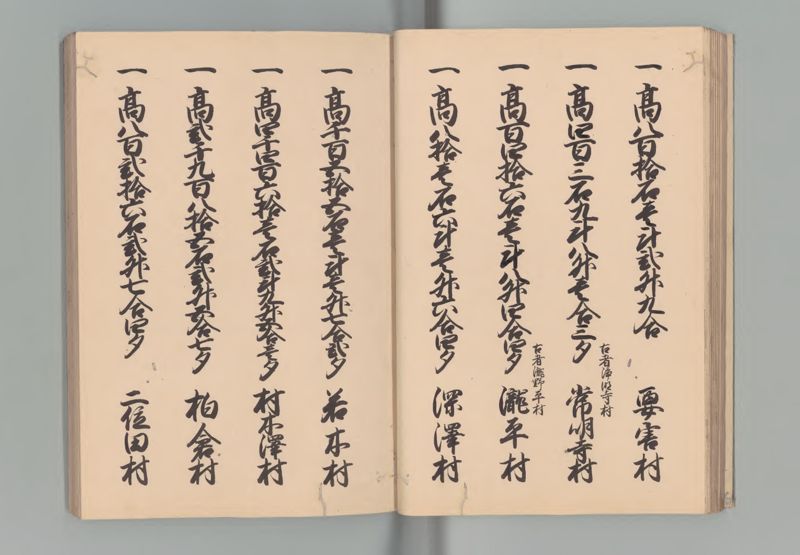 一 高八百拾石壱斗弐升九合 要害村
一 高四百三石九斗八升壱合三夕 常明寺村
古者浄明寺村
一 高百四拾六石壱斗八升四合四夕 瀧平村
古者瀧野平村
一 高八拾壱石六斗壱升六合四夕 深澤村
一 高千百五拾五石壱斗壱升七合弐夕 若木村
一 高四千四百六拾壱石弐斗九升五合壱夕 村木澤村
一 高弐千九百八拾五石弐升五合七夕 柏倉村
一 高八百弐拾六石弐升七合四夕 二位田村